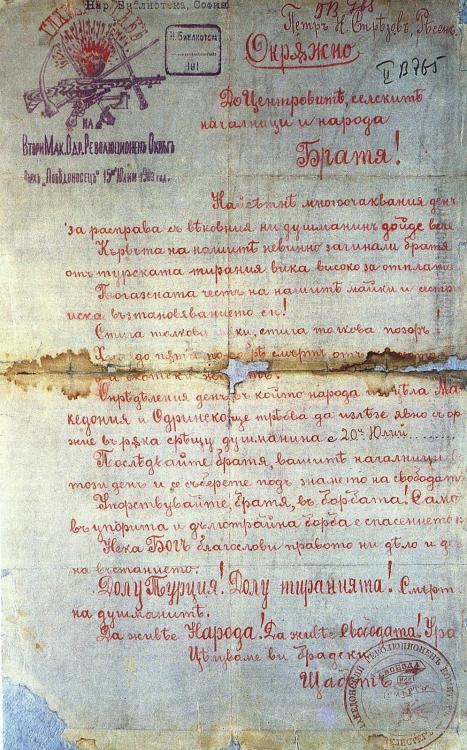 Нар. Библиотека, София
II В 765
Петръ Н.
Н. Библиотека
181
II В 765
Окрѫжно
НА
Втори Мак. Одр. Революционенъ Окрѫгъ
15 Юлий 1903 год.
До Центровитѣ, селскитѣ
началници и народа
Братя!
Най сѣтнѣ многоочаквания день
за расправа съ вѣковния ни душманинъ дойде вече
Кръвьта на нашитѣ невинно загинали братя
отъ турската тирания вика високо за отплата
Погазената честь на нашитѣ майки и сестри
иска възтановяванието си!
Стига толкова мѫки, стига толкова позоръ!
смърть отъ
Опрѣдѣления день, въ който народа изъ цѣла Ма-
кедония и Одринско ще трѣбва да излѣзе явно съ орѫ-
жие въ рѫка срѣщу душманина е 20й Юлий........
Послѣдвайте братя, вашитѣ началници въ
този день и се съберете подъ знамето на свободата
Упорствувайте, братя, въ борбата! Само
въ упорита и дълготрайна борба е спасението
Нека Богъ благослови правото ни дѣло и деня
на въстанието.
Долу Турция! Долу тиранията! Смърть
на душманитѣ.
Да живѣе Народа! Да живѣе Свободата! Ура
Цѣлуваме ви братски
Щабътъ
МАКЕДОНСКИЙ РЕВОЛЮЦИОНЕНЪ КОМИТЕТЪ
СВОБОДА
ИЛИ
СМЪРТЬ